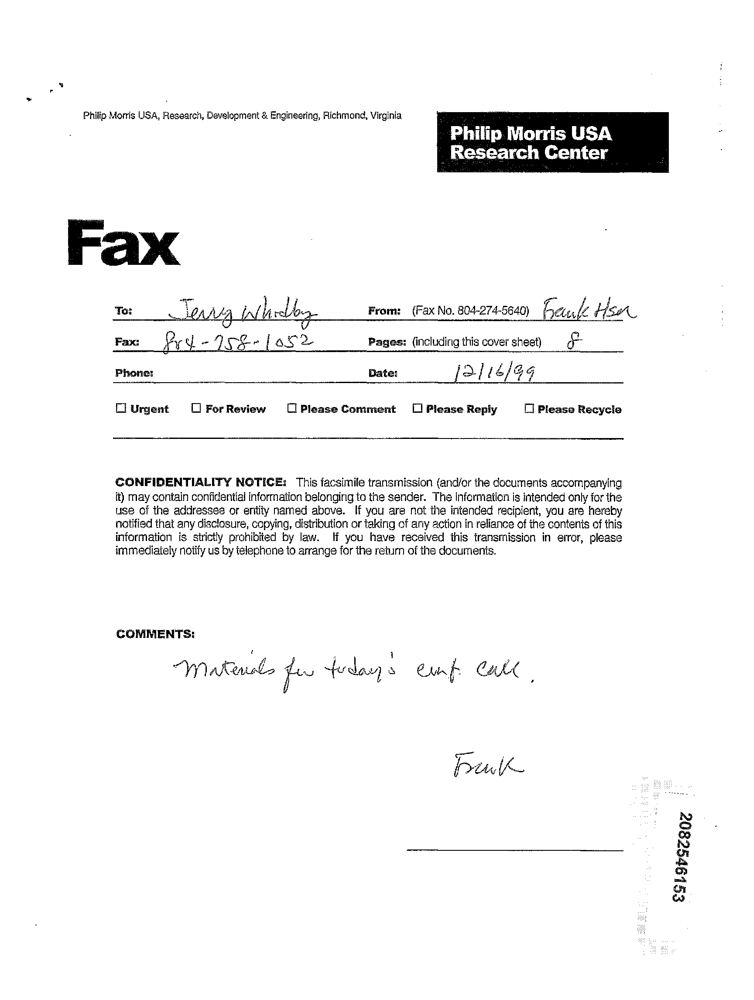 Philip Morris USA, Research, Development & Engineering, Richmond, Virginia
Philip Morris USA
Research Center
Fax
To: Jerry Whidby From: (Fax No. 804-274-5640) Frank Hsu
Fax: 804-758-1052 Pages: (including this cover sheet) 8
Phone: Date: 12/16/99
☐ Urgent ☐ For Review ☐ Please Comment ☐ Please Reply ☐ Please Recycle
CONFIDENTIALITY NOTICE: This facsimile transmission (and/or the documents accompanying
it) may contain confidential information belonging to the sender. The information is intended only for the
use of the addressee or entity named above. If you are not the intended recipient, you are hereby
notified that any disclosure, copying, distribution or taking of any action in reliance of the contents of this
information is strictly prohibited by law. If you have received this transmission in error, please
immediately notify us by telephone to arrange for the return of the documents.
COMMENTS:
Materials for today's conf. call.
Frank
2082546153